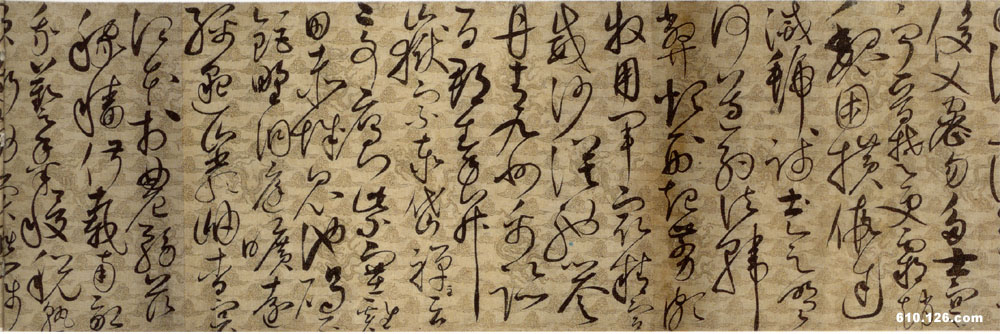 俊乂密勿多士寔
寧晉楚更霸趙
魏困橫假途
滅虢踐土會盟
何遵約法韓
弊煩刑起翦頗
牧用軍最精宣
威沙漠馳譽
丹青九州禹跡
百郡秦并
嶽宗泰岱禪主云
亭雁門紫塞雞
田赤城昆池碣石
鉅野洞庭曠遠
綿邈巖岫杳冥
治本於農務茲
稼穡俶載南畝
我藝黍稷稅熟
610.126.com